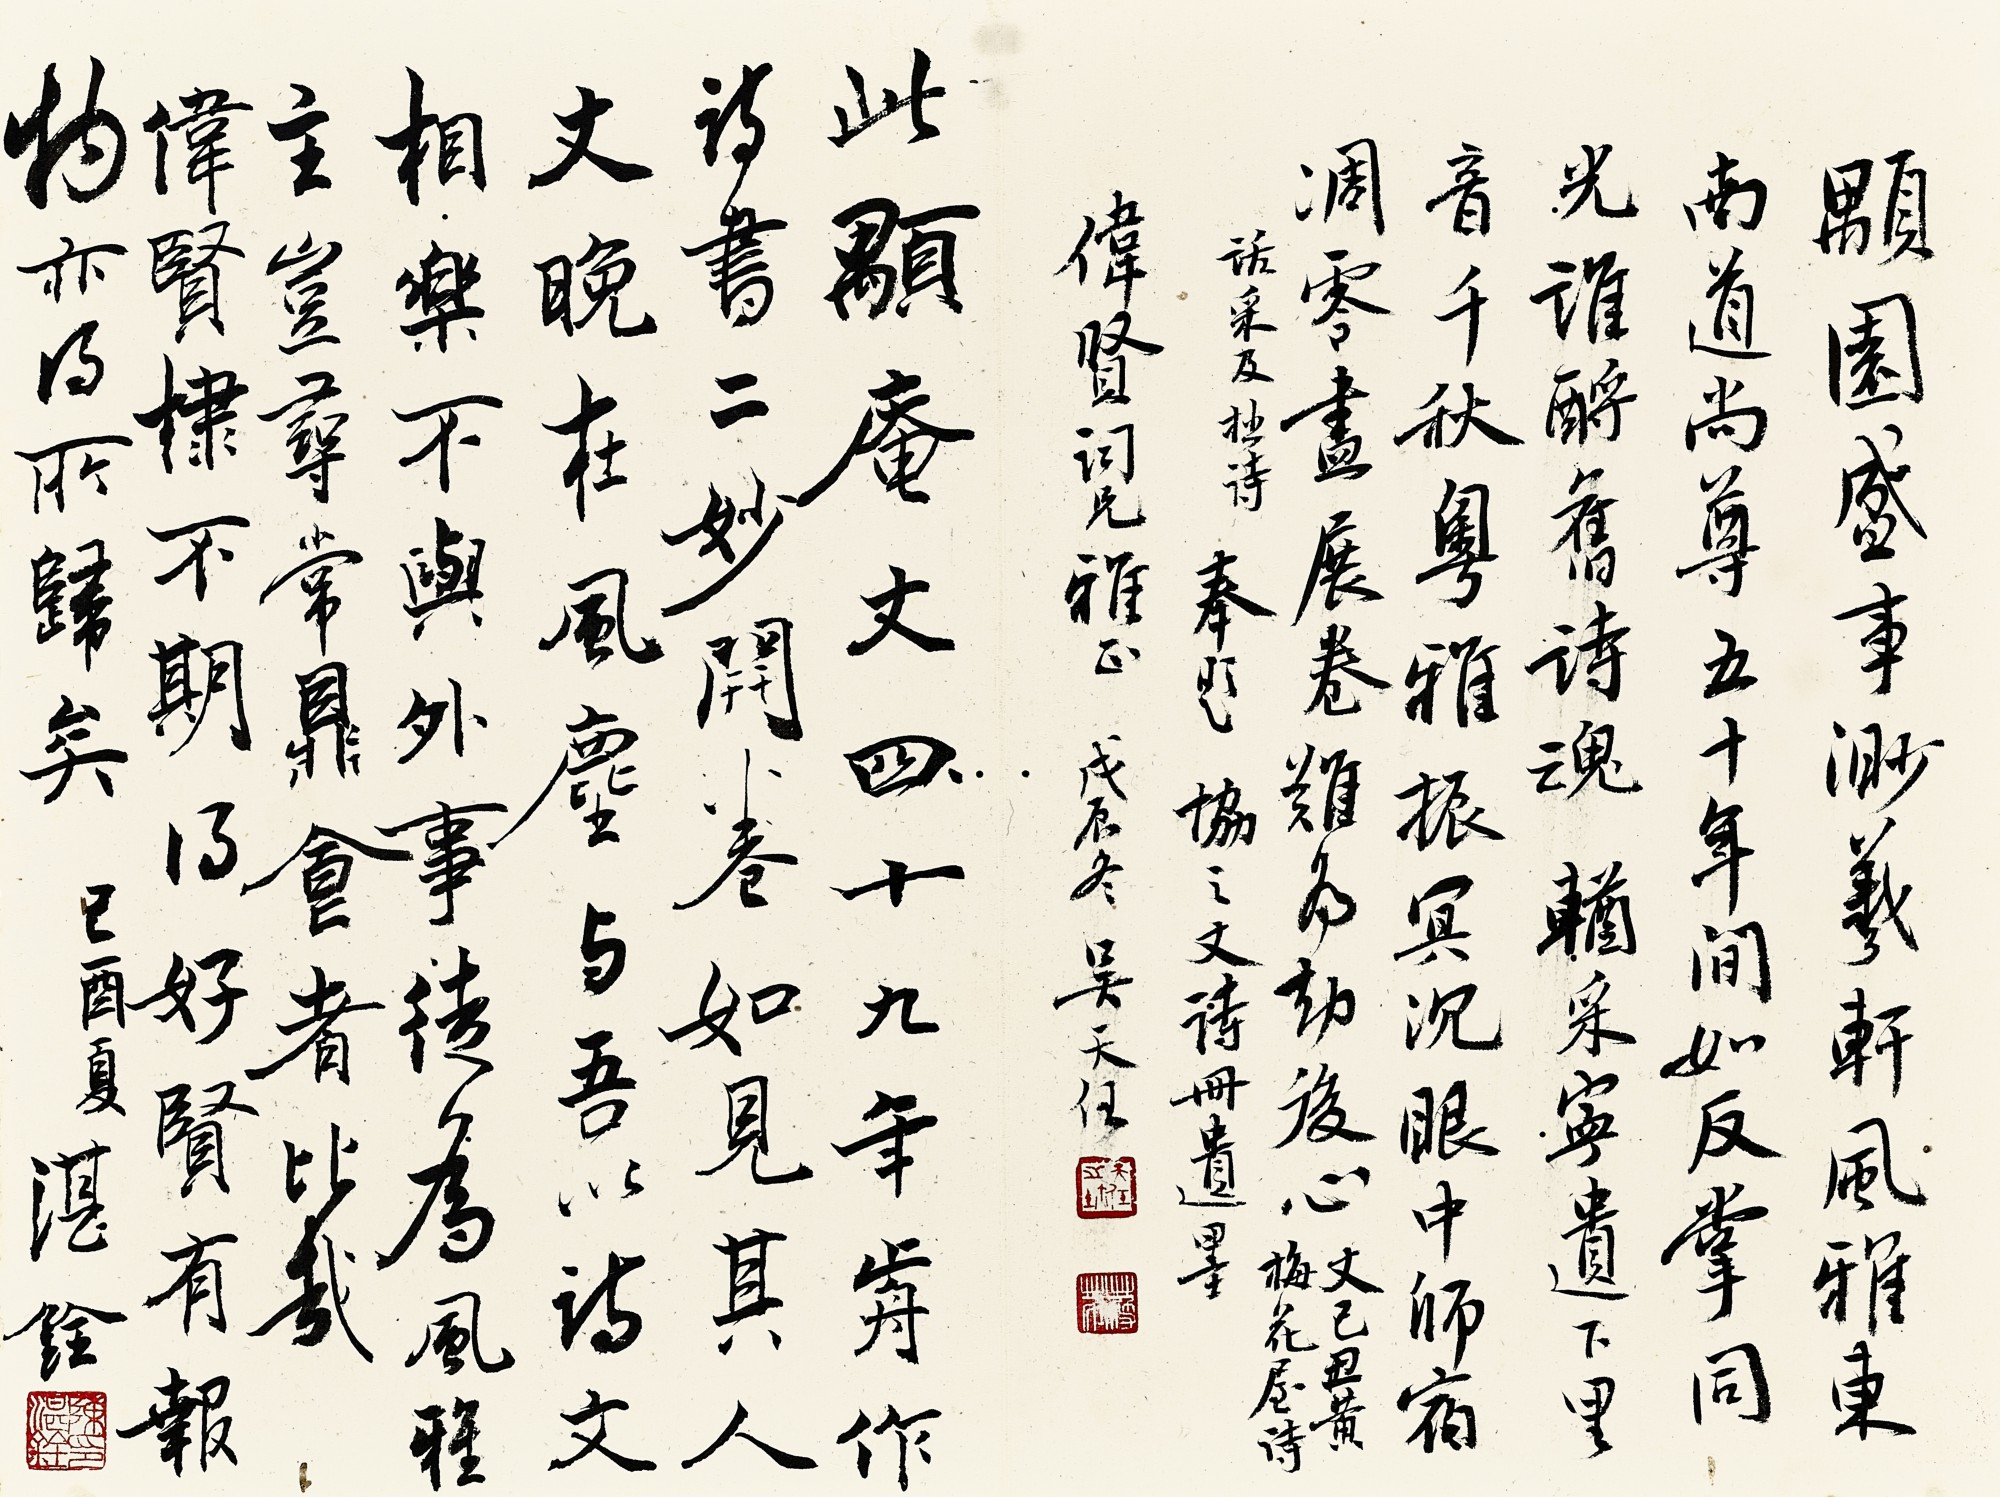 顒園盛事渺羲軒風雅東
南道尚尊五十年間如反掌同
光誰酹舊詩魂輶采寧遺下里
音千秋粵雅振冥沉眼中師宿
凋零盡展卷難為劫後心丈己丑黃
梅花屋詩
話采及拙詩奉題協之丈詩冊遺墨
偉賢詞兄雅正戊辰冬吳天任
此顒庵丈四十九年前作
詩書二妙開卷如見其人
丈晚在風塵与吾以詩文
相樂不與外事徒為風雅
主豈尋常鼎食者比哉
偉賢棣不期得好賢有報
物亦得所歸矣己酉夏湛銓